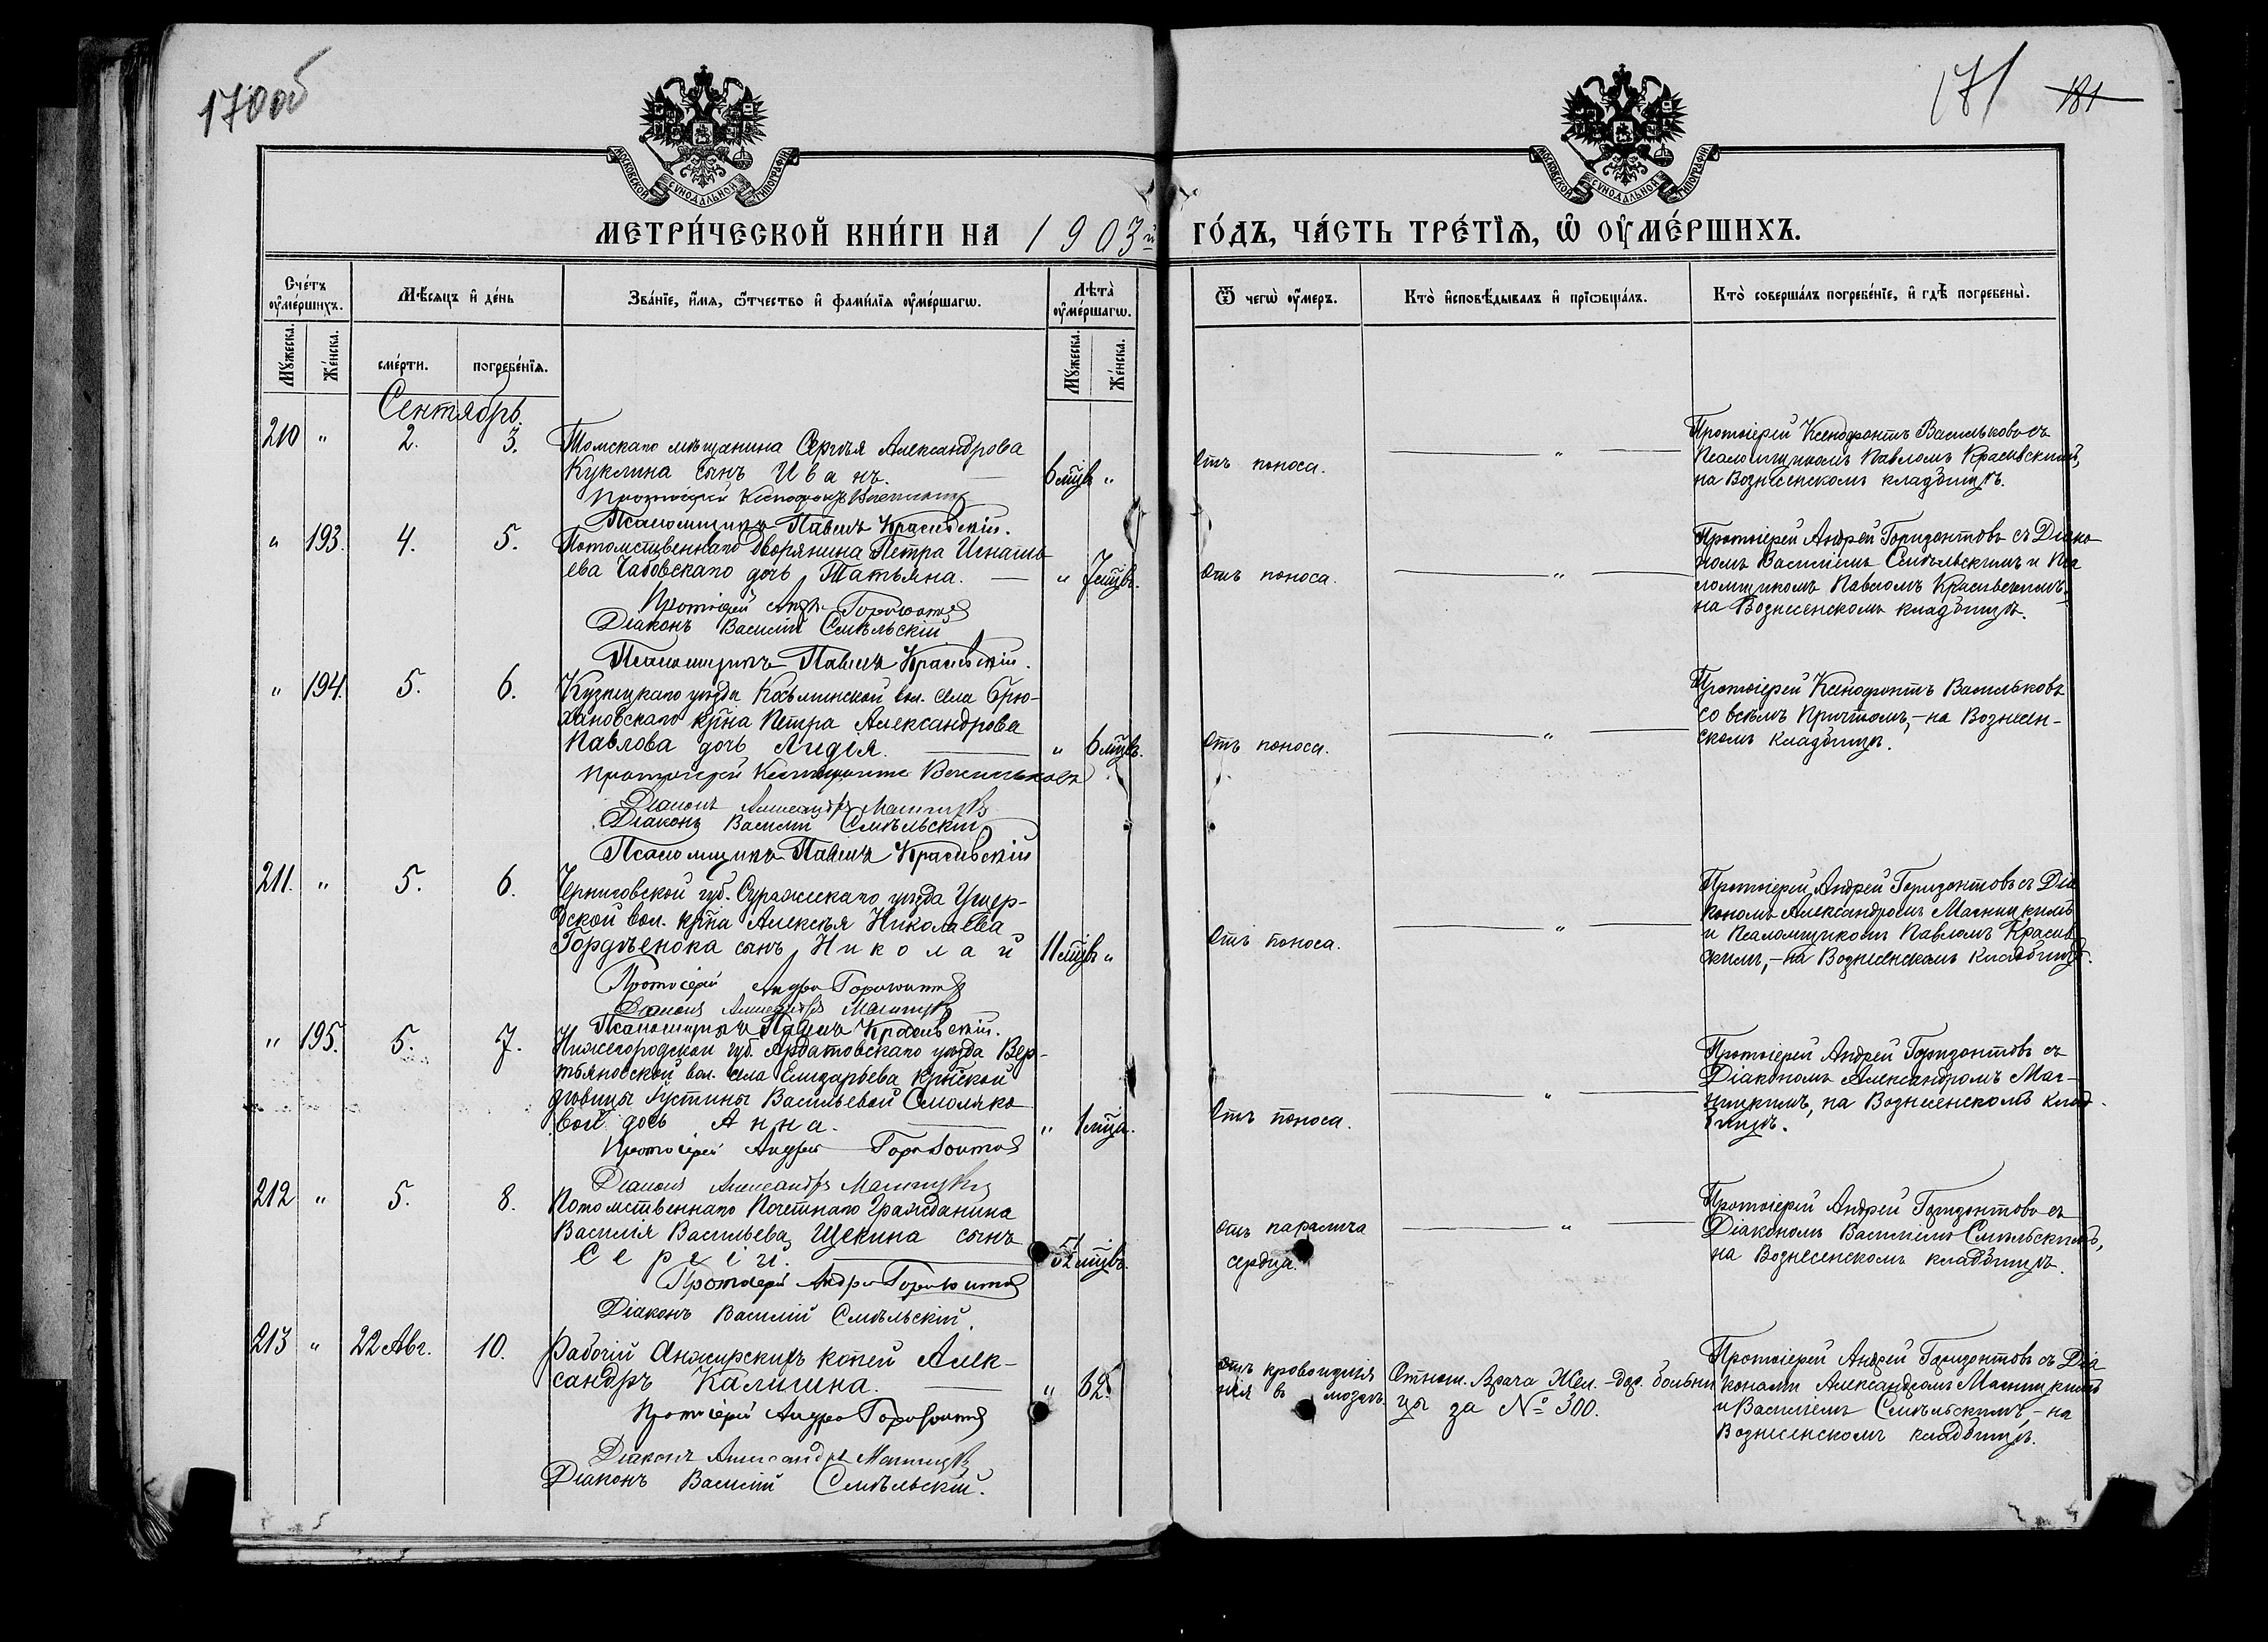 170об
171 181
МОСКОВСКОЙ СѴНОДАЛЬНОЙ ТИПОГРАФІИ
МОСКОВСКОЙ СѴНОДАЛЬНОЙ ТИПОГРАФІИ
МЕТРИ́ЧЕСКОЙ КНИ́ГИ НА 1903й ГО́ДЪ, ЧА́СТЬ ТРЕ́ТЇѦ, Ѡ҆ ОУ҆МЕ́РШИХЪ.
Сче́тъ оу҆ме́ршихъ.
Мѣ́сѧцъ и҆ де́нь
Зва́нїе, и҆́мѧ, ѻ҆́тчество и҆ фами́лїѧ оу҆ме́ршагѡ.
Лѣ́та̀ оу҆ме́ршагѡ.
Ѿ чегѡ̀ оу҆́меръ.
Кто̀ и҆сповѣ́дывалъ и҆ прїѡбща́лъ.
Кто̀ соверша́лъ погребе́нїе, и҆ гдѣ̀ погребены̀.
Мꙋ́жеска. Же́нска. сме́рти. погребе́нїѧ. Мꙋ́жеска. Же́нска.
Сентябрь.
210 " 2. 3. Томскаго мѣщанина Сергѣя Александрова
Куклина сынъ Иванъ. 6 мцвъ "
Протоіерей Ксенофонтъ Васильковъ
Псаломщикъ Павелъ Красивскій.
Отъ поноса.
"
Протоіерей Ксенофонтъ Васильковъ съ
Псаломщикомъ Павломъ Красивскимъ,
на Вознесенскомъ кладбищѣ.
" 193. 4. 5. Потомственнаго Дворянина Петра Игнатье-
ева Чабовскаго дочь Татьяна. " 7 мцвъ.
Протоіерей Андрей Горизонтовъ
Діаконъ Василій Смѣльскій
Псаломщикъ Павелъ Красивскій.
Отъ поноса.
"
Протоіерей Андрей Горизонтовъ съ Діако-
номъ Василіемъ Смѣльскимъ и Пса-
ломщикомъ Павломъ Красивскимъ,
на Вознесенскомъ кладбищѣ.
" 194. 5. 6. Кузнецкаго уѣзда Касьминской вол. села Брю-
хановскаго кр-на Петра Александрова
Павлова дочь Лидія. " 6 мцвъ.
Протоіерей Ксенофонтъ Васильковъ
Діаконъ Александръ Магницкій
Діаконъ Василій Смѣльскій
Псаломщикъ Павелъ Красивскій
Отъ поноса.
"
Протоіерей Ксенофонтъ Васильковъ
со всѣмъ Причтомъ, – на Вознесен-
скомъ кладбищѣ.
211. " 5. 6. Черниговской губ. Суражскаго уѣзда Ущер-
пской вол. кр-на Алексѣя Николаева
Гордѣенока сынъ Николай 11 мцвъ "
Протоіерей Андрей Горизонтовъ
Діаконъ Александръ Магницкій
Псаломщикъ Павелъ Красивскій.
Отъ поноса.
"
Протоіерей Андрей Горизонтовъ съ Діа-
кономъ Александромъ Магницкимъ
и Псаломщикомъ Павломъ Красив-
скимъ, – на Вознесенскомъ кладбищѣ.
" 195. 5. 7. Нижегородской губ. Ардатовскаго уѣзда Вер-
тьяновской вол. села Елизарьева кр-ской
дѣвицы Іустины Васильевой Смоляко-
вой дочь Анна. " 1 мца.
Протоіерей Андрей Горизонтовъ
Діаконъ Александръ Магницкій
Отъ поноса.
"
Протоіерей Андрей Горизонтовъ съ
Діакономъ Александромъ Маг-
ницкимъ, на Вознесенскомъ клад-
бищѣ.
212 " 5. 8. Потомственнаго Почетнаго Гражданина
Василія Васильева Щекина сынъ
Сергій. 5½ мцвъ.
Протоіерей Андрей Горизонтовъ
Діаконъ Василій Смѣльскій.
Отъ паралича
сердца.
"
Протоіерей Андрей Горизонтовъ съ
Діакономъ Василіемъ Смѣльскимъ,
на Вознесенскомъ кладбищѣ.
213 " 22 Авг. 10. Рабочій Анжерскихъ копей Алек-
сандръ Калигина. " 62.
Протоіерей Андрей Горизонтовъ
Діаконъ Александръ Магницкій
Діаконъ Василій Смѣльскій.
Отъ кровоизлія
нія въ мозгъ.
Отнош. Врача Жел.-дор. больни
цы за № 300.
Протоіерей Андрей Горизонтовъ съ Діа-
конами Александромъ Магницкимъ
и Василіемъ Смѣльскимъ, – на
Вознесенскомъ кладбищѣ.